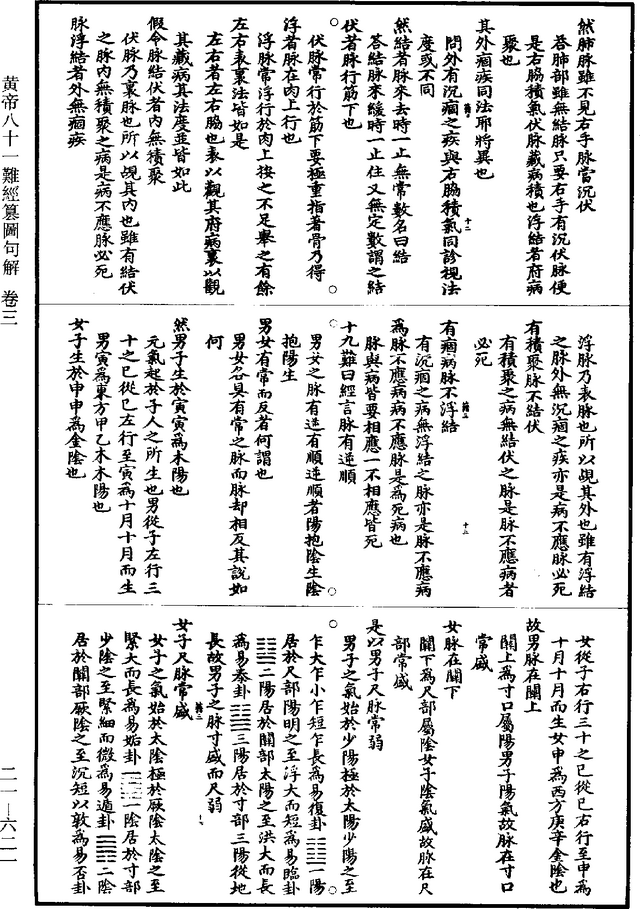 然肺脉雖不見右手脉當沉伏
吞肺部雖無結脉只要右手有沉伏脉便
是右脇積氣伏脉藏病積也浮結者府病
聚也
其外痼疾同法耶將異也
問外有沉痼之疾與右脇積氣同診視法
度或不同
然結者脉來去時一止無常數名曰結
答結脉來緩時一止住又無定數謂之結
伏者脉行筋下也
伏脉常行於筋下要極重指著骨乃得
浮者脉在肉上行也
浮脉常浮行於肉上按之不足舉之有餘
左右表裏法皆如是
左右者左右脇也表以觀其府病裏以觀
其藏病其法度並皆如此
假令脉結伏者內無積聚
伏脉乃裏脉也所以覘其內也雖有結伏
之脉內無積聚之病是病不應脉必死
脉浮結者外無痼疾
浮脉乃表脉也所以覘其外也雖有浮結
之脉外無沉痼之疾亦是病不應脉必死
有積聚脉不結伏
有積聚之病無結伏之脉是脉不應病者
必死
有痼病脉不浮結
有沉痼之病無浮結之脉亦是脉不應病
爲脉不應病病不應脉是爲死病也
脉與病皆要相應一不相應皆死
十九難曰經言脉有逆順
男女之脉有逆有順逆順者陽抱陰生陰
抱陽生
男女有常而反者何謂也
男女各具有常之脉而脉却相反其說如
何
然男子生於寅寅爲木陽也
元氣起於子人之所生也男從子左行三
十之巳從巳左行至寅爲十月十月而生
男寅爲東方甲乙木木陽也
女子生於申申爲金陰也
女從子右行三十之巳從巳右行至申爲
十月十月而生女申爲西方庚辛金陰也
故男脉在關上
關上爲寸口屬陽男子陽氣故脉在寸口
常盛
女脉在關下
關下爲尺部屬陰女子陰氣盛故脉在尺
部常盛
是以男子尺脉常弱
男子之氣始於少陽極於太陽少陽之至
乍大乍小乍短乍長爲易復卦䷗一陽
居於尺部陽明之至浮大而短爲易臨卦
䷒二陽居於關部太陽之至洪大而長
爲易泰卦䷊三陽居於寸部三陽從地
長故男子之脉寸盛而尺弱
女子尺脉常盛
女子之氣始於太陰極於厥陰太陰之至
緊大而長爲易姤卦䷫一陰居於寸部
少陰之至緊細而微爲易遁卦䷠二陰
居於關部厥陰之至沉短以敦爲易否卦
黃帝八十一難經纂圖句解　卷三
二一—六二一